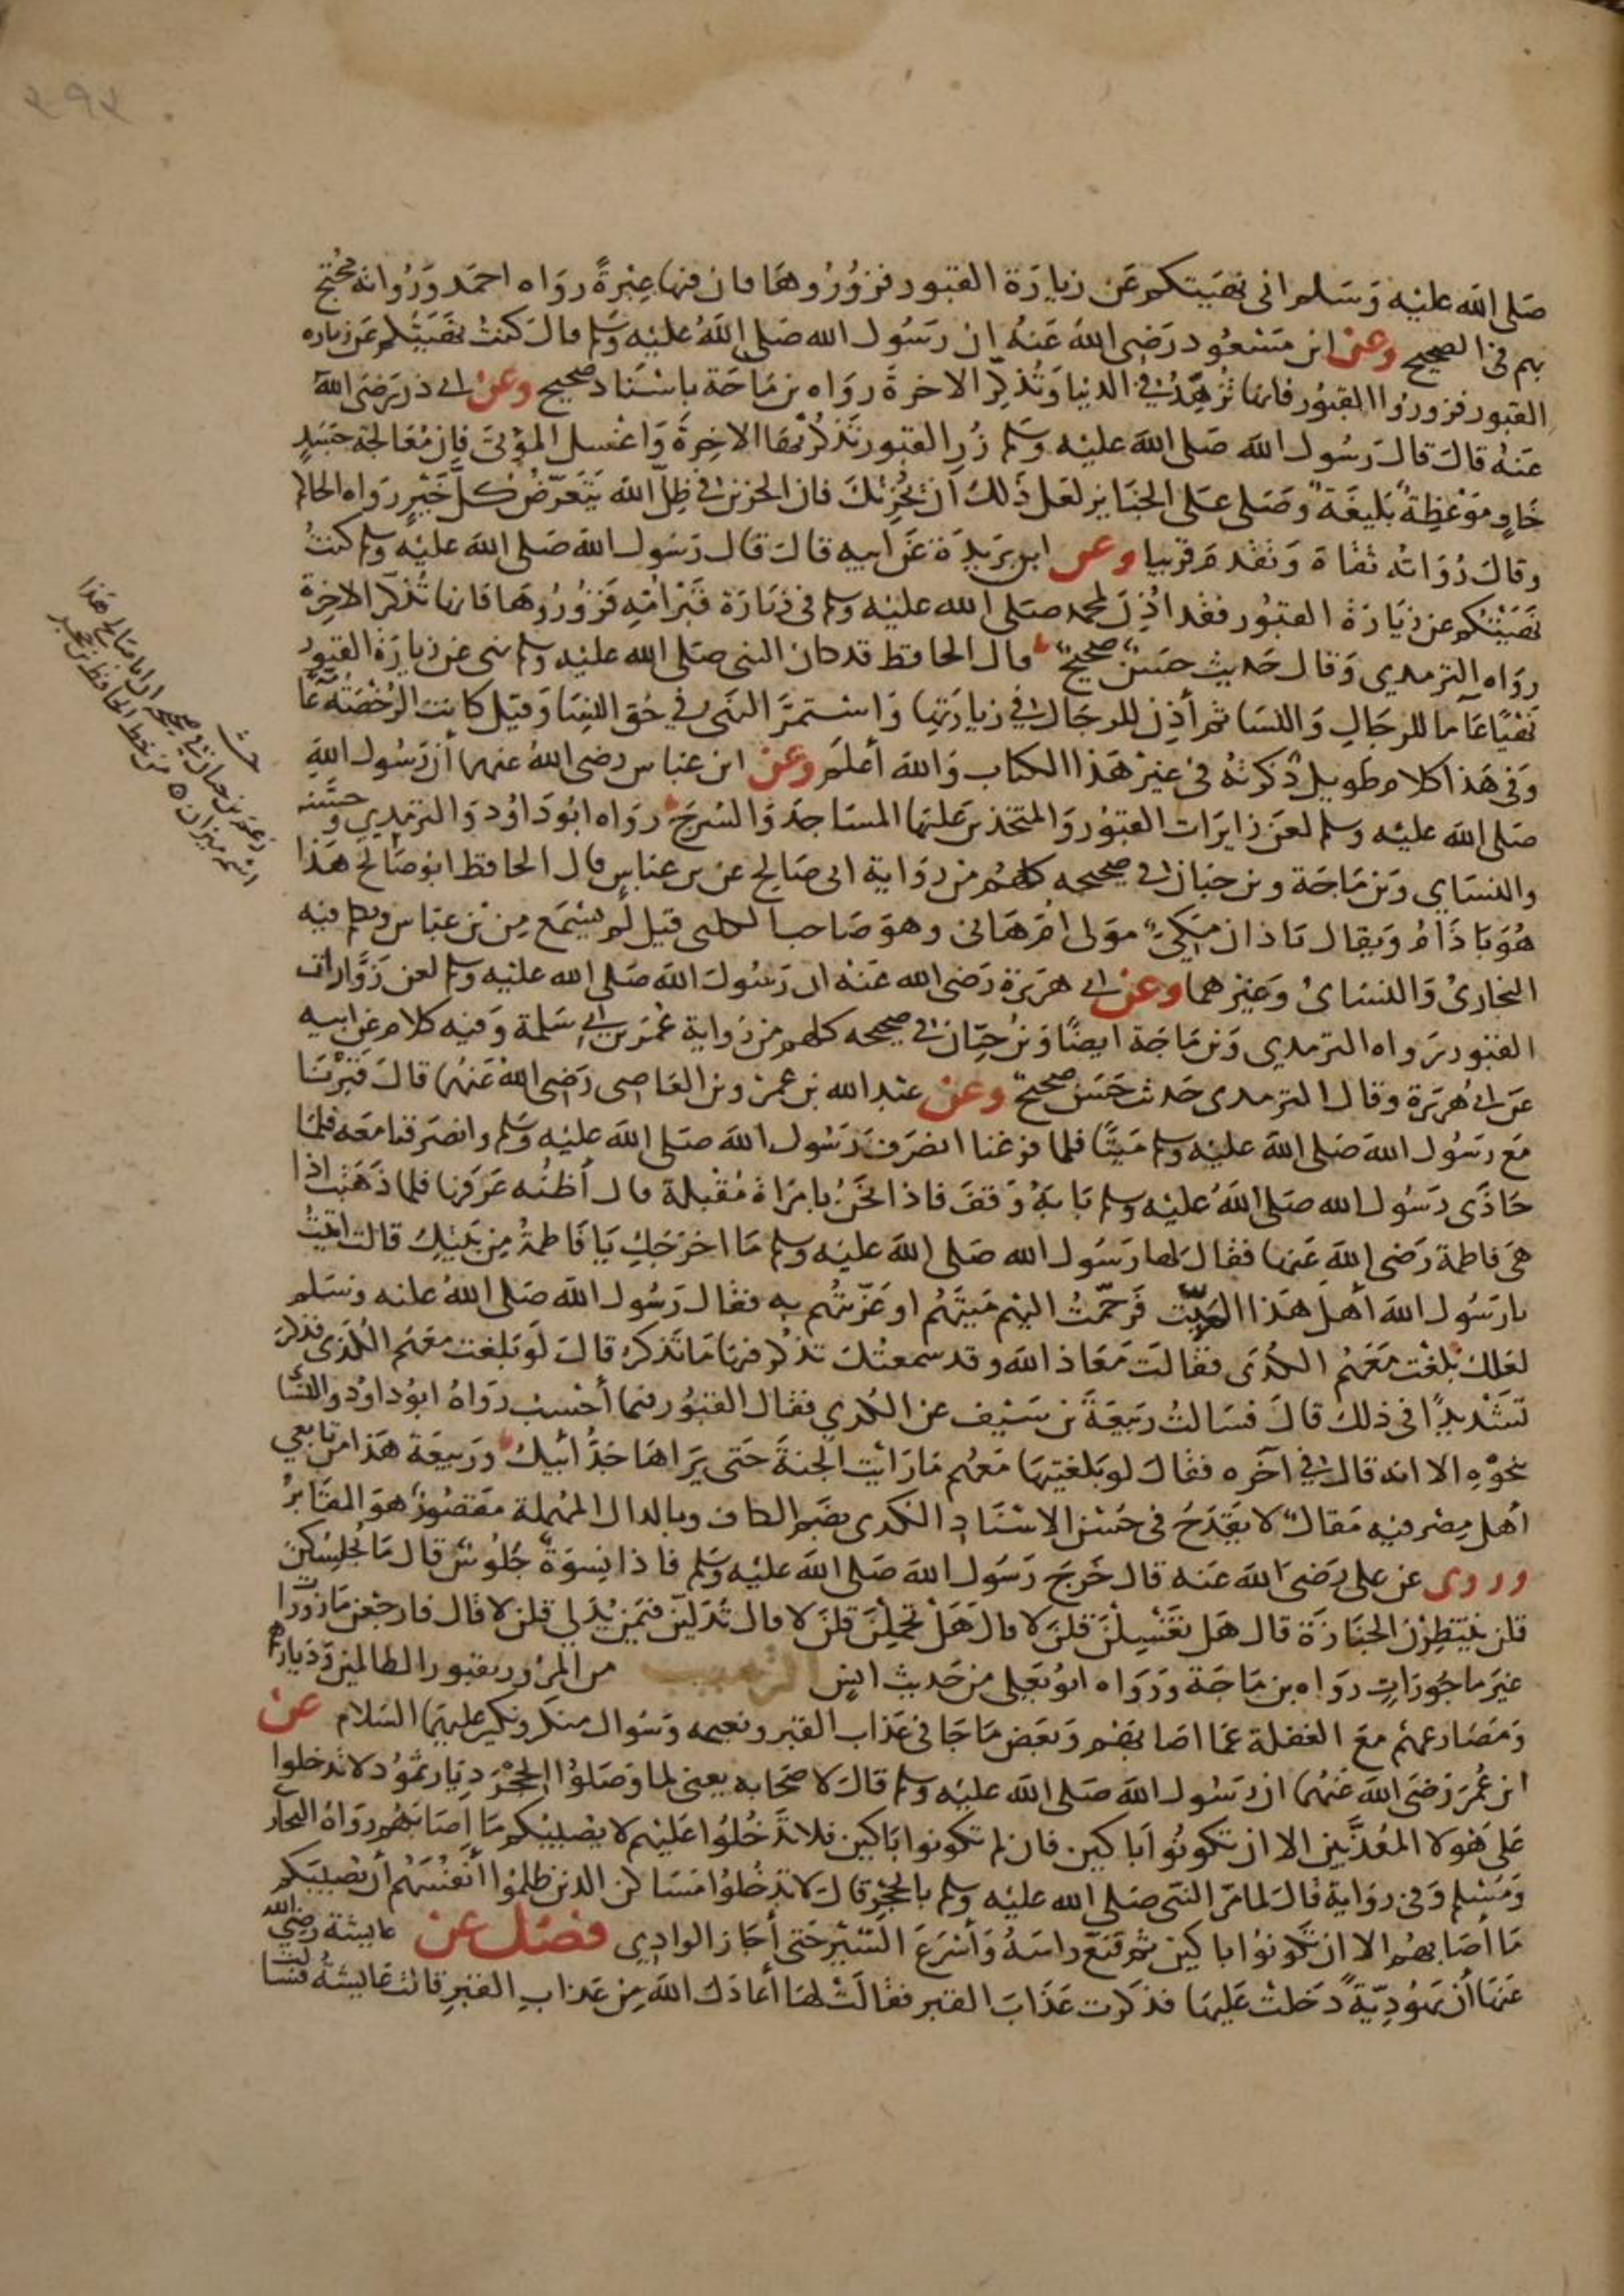 صَلى الله عليْه وَسَلم انى نهَيتكم عَن زيارَة القبور فزُورُوهَا فان فيها عِبْرةً روَاه احمَد وَرُوَاته محْتج
بهم في الصحيح وعن ابن مَسْعُود رَضى اللهُ عَنهُ ان رَسُول الله صَلى اللهُ عليْه وسَلم قالَ كنتُ نهَيْتُكم عَن زياره
القبور فزورُوا القبُور فانها تُزهِّدُ فى الدنيا وَتُذكِّر الاخرةَ روَاه بن مَاجَة باسْنَاد صحيح وعن ابى ذر رَضى الله
عَنهُ قالَ قالَ رَسُول الله صَلى الله عليْه وسَلم زُرِ القبور تَذكُرْ بهَا الاخِرةَ وَاغْسل الموْتىَ فإن مُعَالجة جسَدٍ
خَاوٍ موْعِظةٌ بَليغَة وَصَلى عَلى الجنَايز لعَل ذَلكَ اَن يحُزِنكَ فان الحزين فى ظِلّ الله يَتَعرّضُ كلَّ خَيْرٍ رَواه الحاكم
وقالَ رُوَاتُه ثقاة وَتقَدم قريبا وعن ابن بُرَيدة عَن ابيه قالَ قالَ رَسُول الله صَلى الله عليْه وسلم كنتُ
نهَيْتُكم عن زيَارَة القبُور فقد اُذِنَ لمحمد صَلى الله عليْه وسلم فى زيَارَة قبْر امّهِ فَزُورُوهَا فانها تُذكّر الاخِرَة
روَاه الترمدي وَقال حَديث حسَنٌ صحيحٌ قال الحافظ قد كان النبى صَلى الله عليْه وسلم نهى عن زيارَة القبور
نهْيًا عَاما للرجَالِ وَالنسَا ثم أذِن للرجَال فى زيارَتها وَاستمرَّ النهَى فى حَق النِسَا وَقيل كانت الرُخْصَة عَامّة
وَفى هَذا كلام طويلٌ ذكرتهُ فى غيرْ هَذا الكتاب وَالله أعلَم وعن ابن عَباس رضى اللهُ عنهما أن رَسُول اللهِ
صَلى الله عليْه وسلم لعَن زايرَات القبوُر وَالمتخذين عَليْها المسَاجدَ وَالسُرجَ روَاه ابُو دَاوُد وَالترمدي وحَسّنه
والنسَاي وَبن مَاجَة وبن حبَان فى صحيحه كلهُم من روَاية ابى صَالح عن بن عبَاسٍ قال الحافظ ابو صَالح هَذا
هُوَ بَاذَامُ وَيقال بَاذان مَكيٌ مَولى اُم هَانى وهوَ صَاحب الكلبى قيل لَم يسْمَع من بن عبَاس وَتكلم فيه
البخاريُ وَالنسَائُ وَغيرْهما وعن ابى هرَيرَة رَضى الله عَنْه ان رَسُولَ الله صَلى الله عليْه وسلم لعن زَوَّارات
القبُور رواه الترمدي وَبن مَاجَة ايضًا وَبن حِبّان فى صحيحه كلهم من رَواية عُمر بن ابى سَلمة وَفيه كلام عَن ابيه
عَن ابى هُرَيْرة وقال الترمدى حَديث حَسَن صحيحٌ وعن عبْد الله بن عمرْو بن العَاصى رَضى اللهُ عَنْهُما قالَ قبرْنَا
مَع رَسُول الله صَلى الله عليْه وسلم ميتًا فلما فرَغنا انصرَفَ رَسُول الله صَلى الله عليْه وسَلم وانصَرفنا مَعَه فلمّا
حَاذَى رَسُول الله صَلى اللهُ عليْه وسلم بَابَهُ وَقفَ فاذا نَحنُ بامرَاة مُقبْلة قال أظنُه عرَفها فلمّا ذهَبَت اذا
هىَ فاطمة رَضى الله عَنها فقال لَها رسَول الله صَلى الله عليْه وسلم مَا اخرجَكِ يَا فَاطمةُ من بَيْتكِ قالت اتيتُ
يا رَسُول الله أهل هَذا المَيّت فرَحّمتُ اليهم مَيتَهُم او عَزّيتُهم به فقال رَسُول الله صَلى اللهُ عليه وسَلم
لعَلكِ بَلغْت مَعَهُم الكُدَى فقالَت مَعَاذ الله وقد سمعتُكَ تذكُر فيها مَا تَذكر قالَ لَو بَلغت معَهُم الكُدَى فذكرَ
تشْديدًا فى ذلكَ قالَ فسَالتُ رَبيعَةَ بن سَيْف عن الكُدي فقال القبُور فيما أحْسِب روَاهُ ابوُ داوُد وَالنسَا
نحْوهِ الا انه قال فى آخره فقالَ لو بَلغتيهَا مَعهم مَا رَأيت الجنةَ حَتى يَرَاهَا جَدُّ أبيكِ وَرَبيعَة هَذا من تَابعى
أهل مِصْر فيه مَقالٌ لا يَقدَحُ فى حُسْن الاسْنَادِ الكدى بضَم الكاف وبالدال المهْملة مَقصُورٌ هوَ المقَابرُ
وروى عن على رَضىَ الله عَنه قال خَرجَ رَسُول الله صَلى الله عليْه وسَلم فاذا نِسوَةٌ جُلوُسٌ قال مَا يُجْلِسُكن
قلن نَنتَظِرُ الجنَازَة قال هَل تغَسِّلْنَ قُلنَ لا قالَ هَلْ تحْملْنَ قلنَ لا قال تُدَلينَ فيمَن يُدَلي قلن لا قال فارجعن مَازُورا
غيرَ ماجُورَاتٍ روَاه بن مَاجَة وَرَوَاه ابوُ يَعلى من حَديث انسٍ الترهيب من المرُور بقبور الظالمين وديارهم
وَمصَارعهمْ معَ الغفلة عمَا اصَابهُم وَبعَض مَا جَا فى عَذاب القبر ونعيمه وَسُوال منكر ونكير عليهما السَلام عن
ابن عُمر رَضىَ الله عَنهُما ان رَسُول الله صَلى الله عليْه وسلم قالَ لاصحَابه يعنى لما وَصَلوُا الحِجْرَ ديَار ثمُود لا تدخلوا
عَلى هَولا المعُذَّبين الا ان تكونُوا بَاكين فان لم تكونوا بَاكين فلا تَدخُلوُا عَليْهم لا يصْيبُكم مَا اصَابَهُم رَوَاهُ البخار
وَمُسْلم وَفى روَاية قالَ لمامَرّ النبى صَلى الله عليْه وسلم بالحِجْرِ قالَ لا تدخُلوُا مسَاكن الدين ظلمُوا أنفُسَهُم أن يصيبَكم
مَا أصَابهُم الا ان تَكونُوا باكين ثم قنعَ راسَهُ وَأسْرَعَ السَيْر حَتى أجَاز الوادِي فصْل عن عَايشة رضِي الله
عَنهَا أن يَهُودِيّةً دَخلتْ عَليهَا فذكرَت عَذَابَ القبر فقالَتْ لهَا أعَاذك الله مِن عَذابِ القبْرِ قالت عَايشهُ فسَا